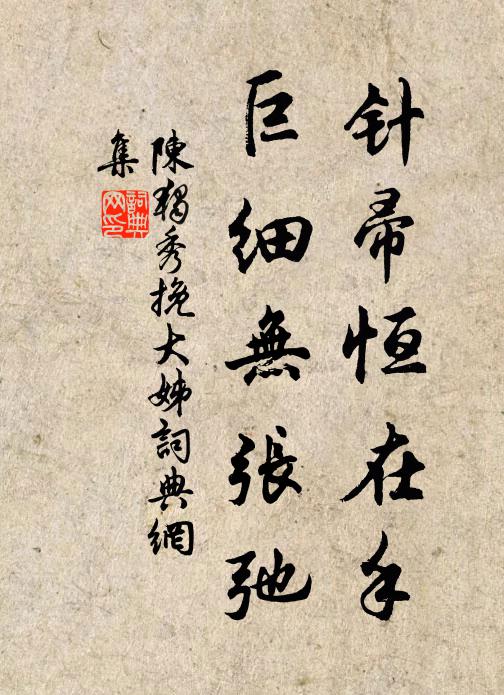 针帚恒在手
巨細無張弛
陳獨秀挽大姊詞典網
集
詞典
网印